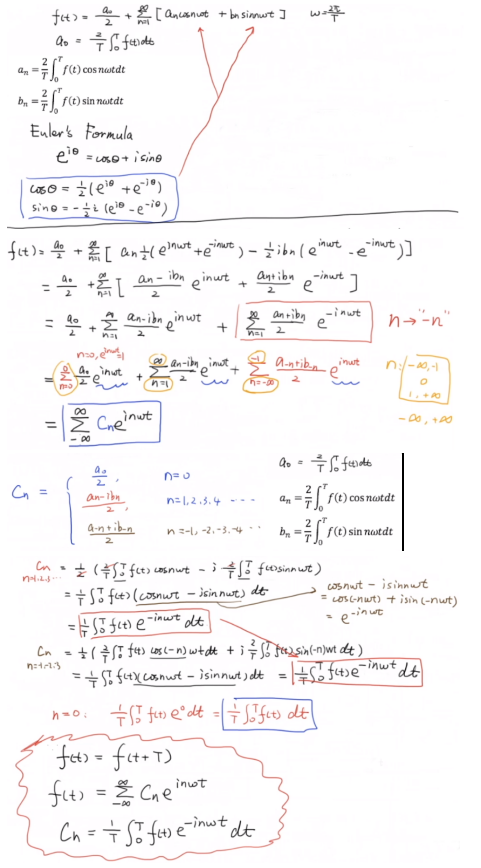 f(t) = a₀/2 + ∑_{n=1}^{∞} [ aₙcosnωt + bₙsinnωt ]    ω = 2π/T
a₀ = 2/T ∫₀ᵀ f(t)dt
aₙ = 2/T ∫₀ᵀ f(t) cos nωt dt
bₙ = 2/T ∫₀ᵀ f(t) sin nωt dt
Euler's Formula
e^{iθ} = cosθ + i sinθ
cosθ = 1/2 (e^{iθ} + e^{-iθ})
sinθ = -1/2 i (e^{iθ} - e^{-iθ})
f(t) = a₀/2 + ∑_{n=1}^{∞} [ aₙ 1/2 (e^{inωt} + e^{-inωt}) - 1/2 ibₙ (e^{inωt} - e^{-inωt}) ]
= a₀/2 + ∑_{n=1}^{∞} [ (aₙ - ibₙ)/2 e^{inωt} + (aₙ + ibₙ)/2 e^{-inωt} ]
= a₀/2 + ∑_{n=1}^{∞} (aₙ - ibₙ)/2 e^{inωt} + ∑_{n=1}^{∞} (aₙ + ibₙ)/2 e^{-inωt}    n → "-n"
n=0, e^{inωt}=1
= ∑_{n=0}^{0} a₀/2 e^{inωt} + ∑_{n=1}^{∞} (aₙ - ibₙ)/2 e^{inωt} + ∑_{n=-∞}^{-1} (a₋ₙ + ib₋ₙ)/2 e^{inωt}    n: -∞, -1
0
1, +∞
= ∑_{-∞}^{∞} Cₙ e^{inωt}    -∞, +∞
a₀ = 2/T ∫₀ᵀ f(t)dt
Cₙ = { a₀/2,    n=0
(aₙ - ibₙ)/2,    n=1,2,3,4 ----    aₙ = 2/T ∫₀ᵀ f(t) cos nωt dt
(a₋ₙ + ib₋ₙ)/2    n=-1,-2,-3,-4 ··    bₙ = 2/T ∫₀ᵀ f(t) sin nωt dt
Cₙ = 1/2 ( 2/T ∫₀ᵀ f(t) cosnωt - i 2/T ∫₀ᵀ f(t) sinnωt )
n=1,2,3···
= 1/T ∫₀ᵀ f(t) (cosnωt - isinnωt) dt    cosnωt - isinnωt
= cos(-nωt) + isin(-nωt)
= 1/T ∫₀ᵀ f(t) e^{-inωt} dt    = e^{-inωt}
Cₙ = 1/2 ( 2/T ∫₀ᵀ f(t) cos(-n)ωt dt + i 2/T ∫₀ᵀ f(t) sin(-n)ωt dt )
n=-1,-2,-3
= 1/T ∫₀ᵀ f(t) (cosnωt - isinnωt) dt = 1/T ∫₀ᵀ f(t) e^{-inωt} dt
n=0: 1/T ∫₀ᵀ f(t) e⁰ dt = 1/T ∫₀ᵀ f(t) dt
f(t) = f(t+T)
f(t) = ∑_{-∞}^{∞} Cₙ e^{inωt}
Cₙ = 1/T ∫₀ᵀ f(t) e^{-inωt} dt